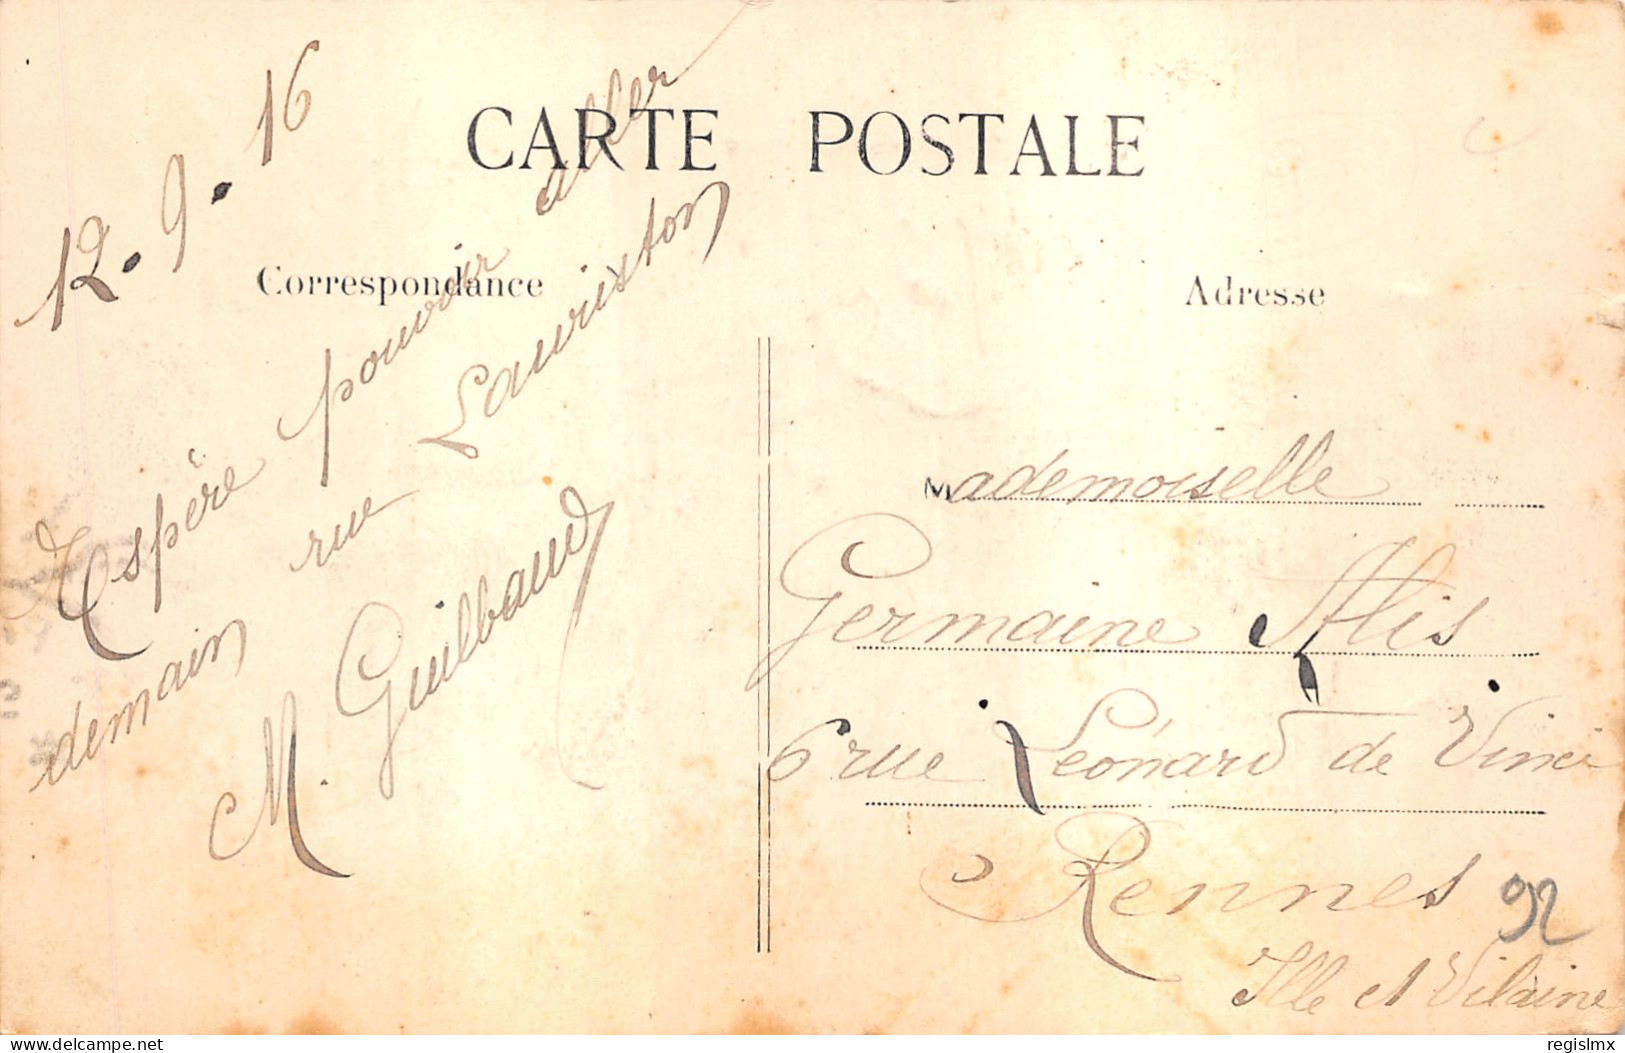 CARTE POSTALE
Correspondance
12.9.16
Espère pouvoir aller
demain rue Lauriston
M. Guilbaud
Adresse
Mademoiselle
Germaine Alis
6 rue Léonard de Vinci
Rennes
Ille et Vilaine
92
www.delcampe.net
regislmx